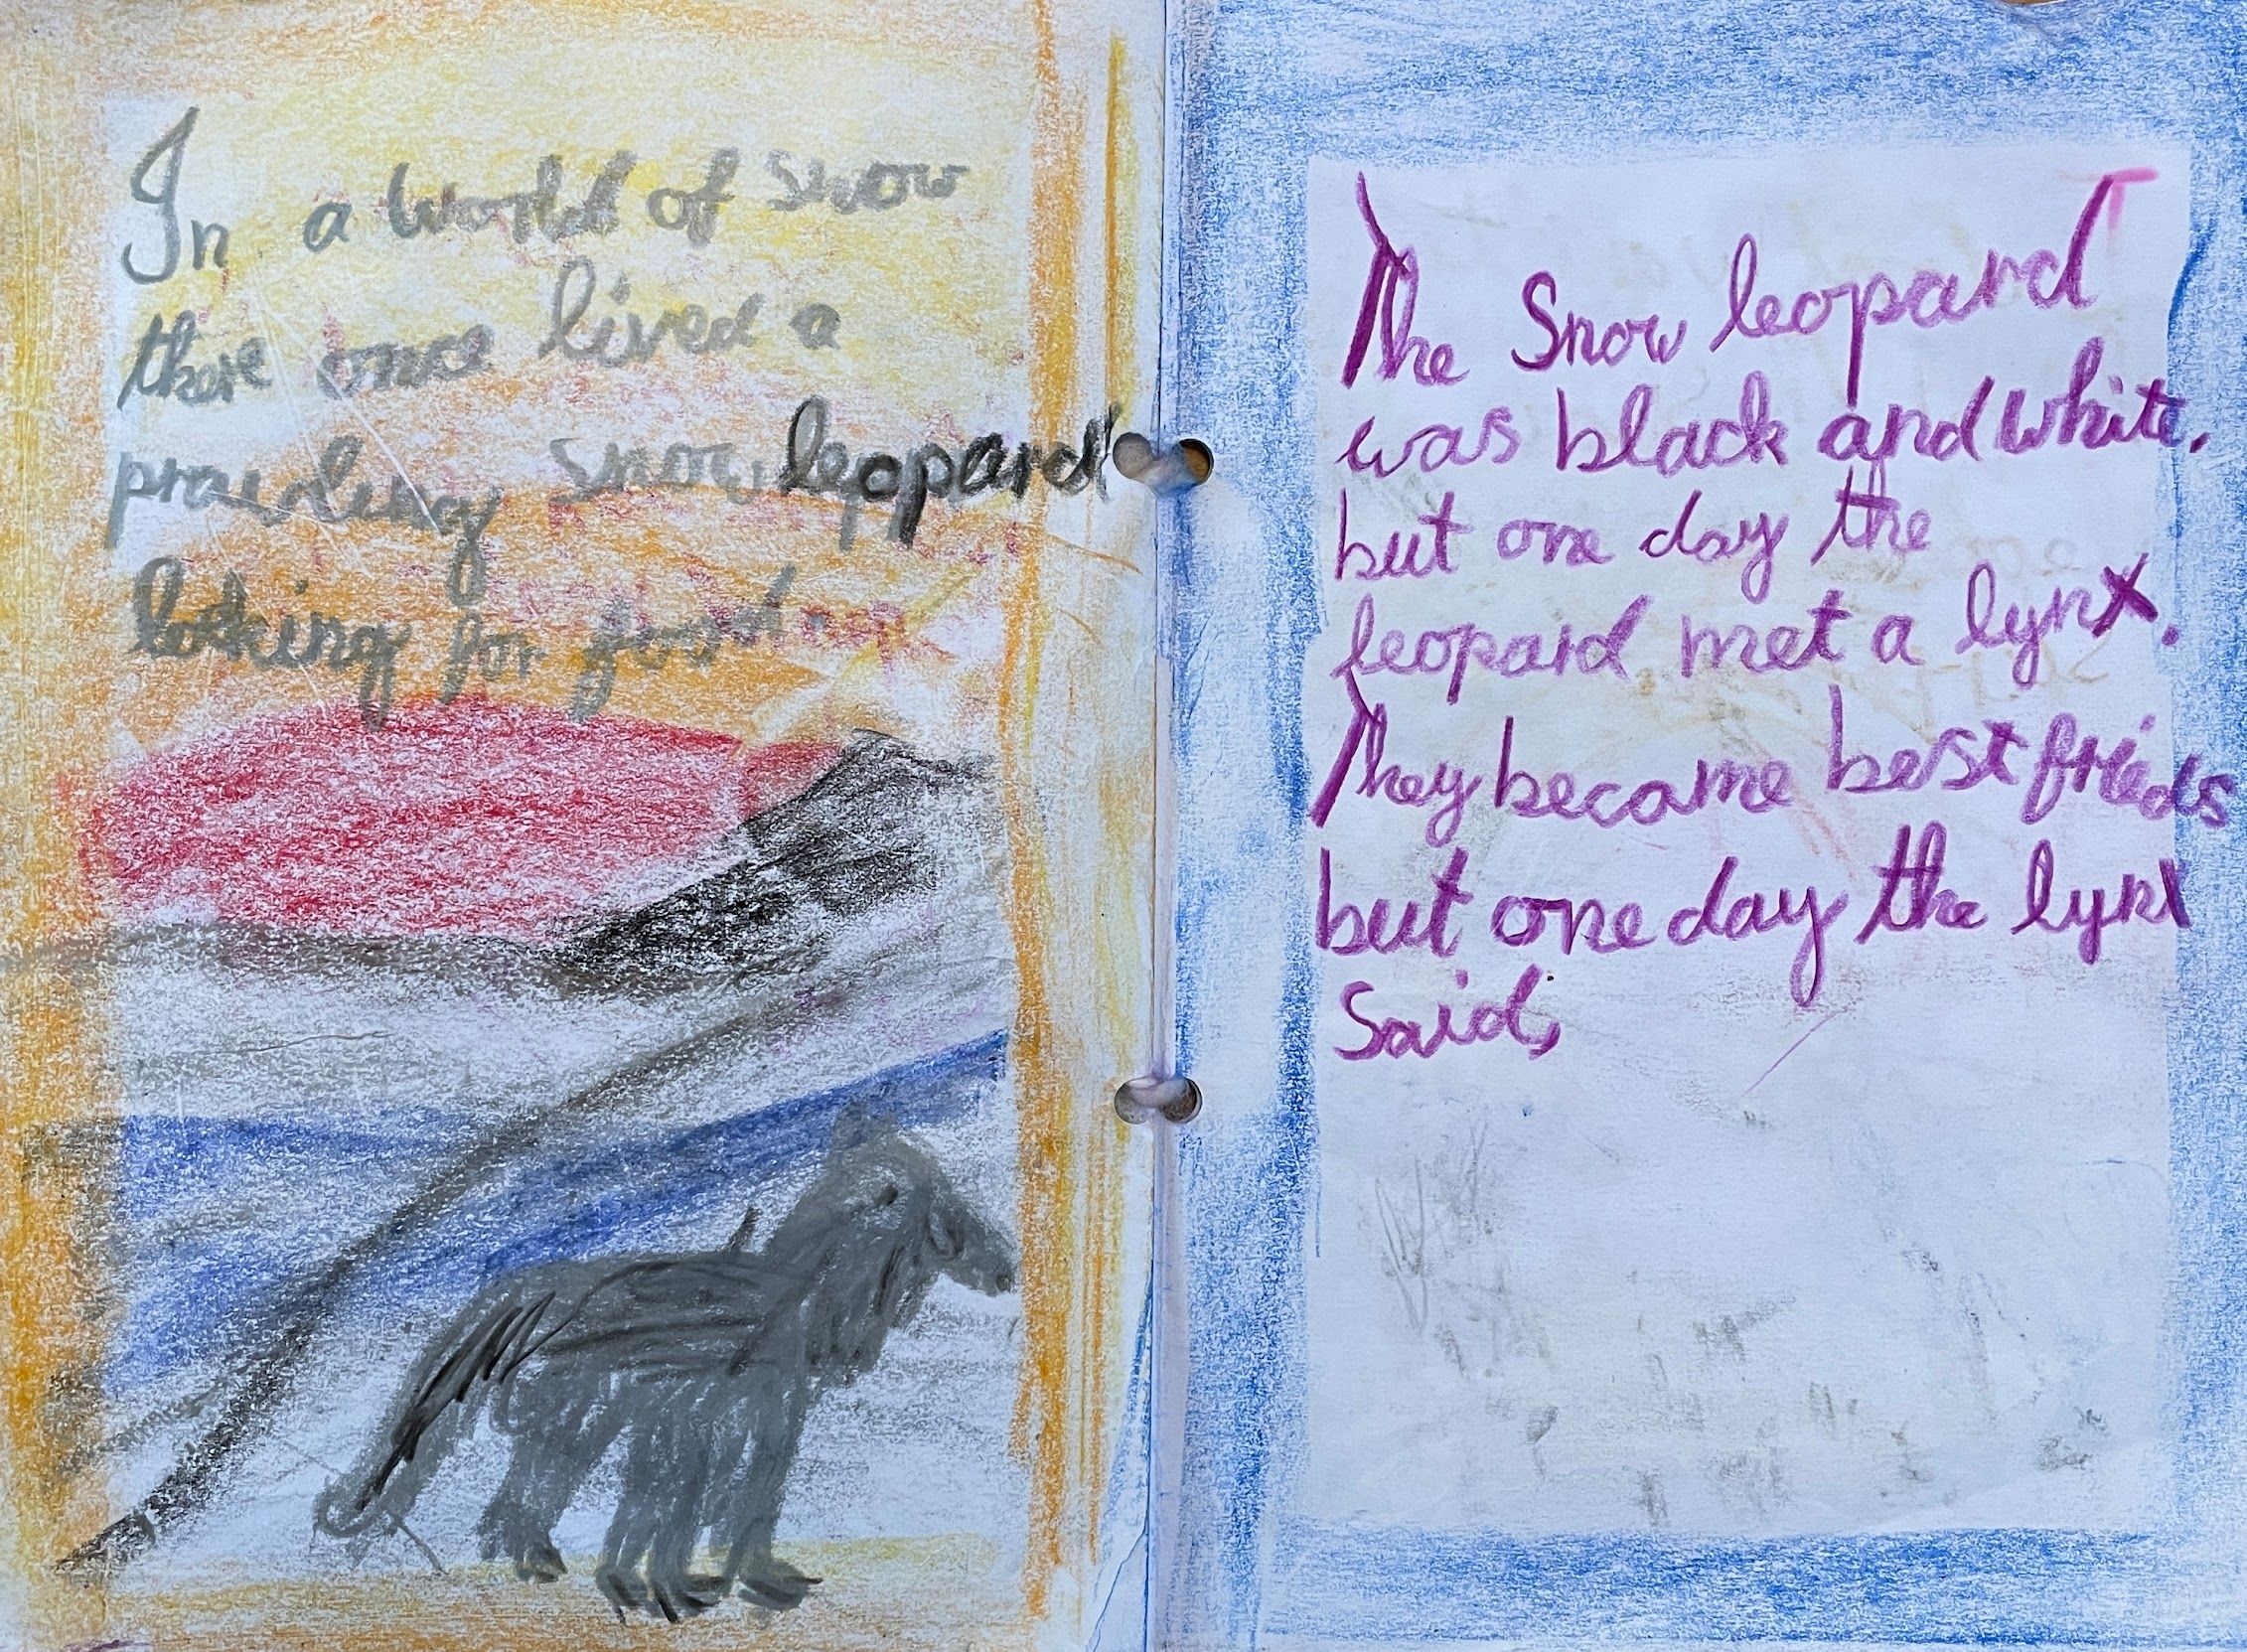 In a world of snow
there once lived a
prowling snow leopard
looking for food.
The Snow leopard
was black and white.
but one day the
leopard met a lynx.
They became best frieds
but one day the lynx
Said,